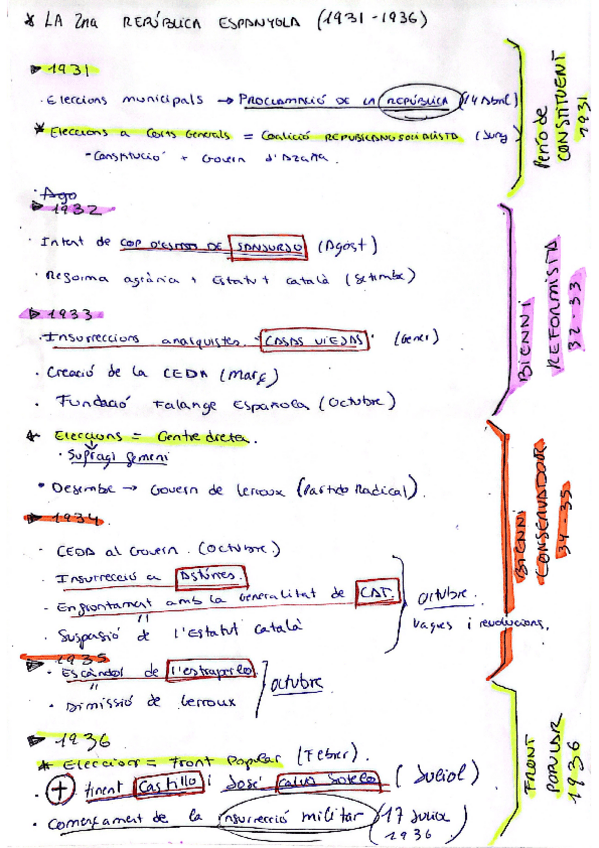 * LA 2na REPÚBLICA ESPANYOLA (1931-1936)
1931
· Eleccions municipals → PROCLAMACIÓ DE LA REPÚBLICA (14 Abril)
* Eleccions a Corts Generals = Coalició REPUBLICANO SOCIALISTA (Juny)
- Constitució + Govern d'Azaña.
PERÍODE CONSTITUENT 1931
· Ago
1932
· Intent de COP D'ESTAT DE SANJURJO (Agost)
· Reforma agrària + Estatut català (Setembre)
1933
· Insurreccions anarquistes. "CASAS VIEJAS". (Gener)
· Creació de la CEDA (Març)
· Fundació Falange Española (Octubre)
BIENNI REFORMISTA 32-33
* Eleccions = Centredreta.
· Sufragi femení
· Desembre → Govern de Lerroux (Partido Radical).
1934
· CEDA al Govern. (Octubre)
· Insurrecció a Astúries.
· Enfrontament amb la Generalitat de CAT.
· Suspensió de l'Estatut català
octubre.
Vagues i revolucions.
1935
· Escàndol de l'estraperlo
· Dimissió de Lerroux
octubre
BIENNI CONSERVADOR 34-35
1936
* Eleccions = Front Popular (Febrer).
· + tinent Castillo i José Calvo Sotelo (Juliol)
· Començament de la insurrecció militar (17 Juliol 1936)
FRONT POPULAR 1936